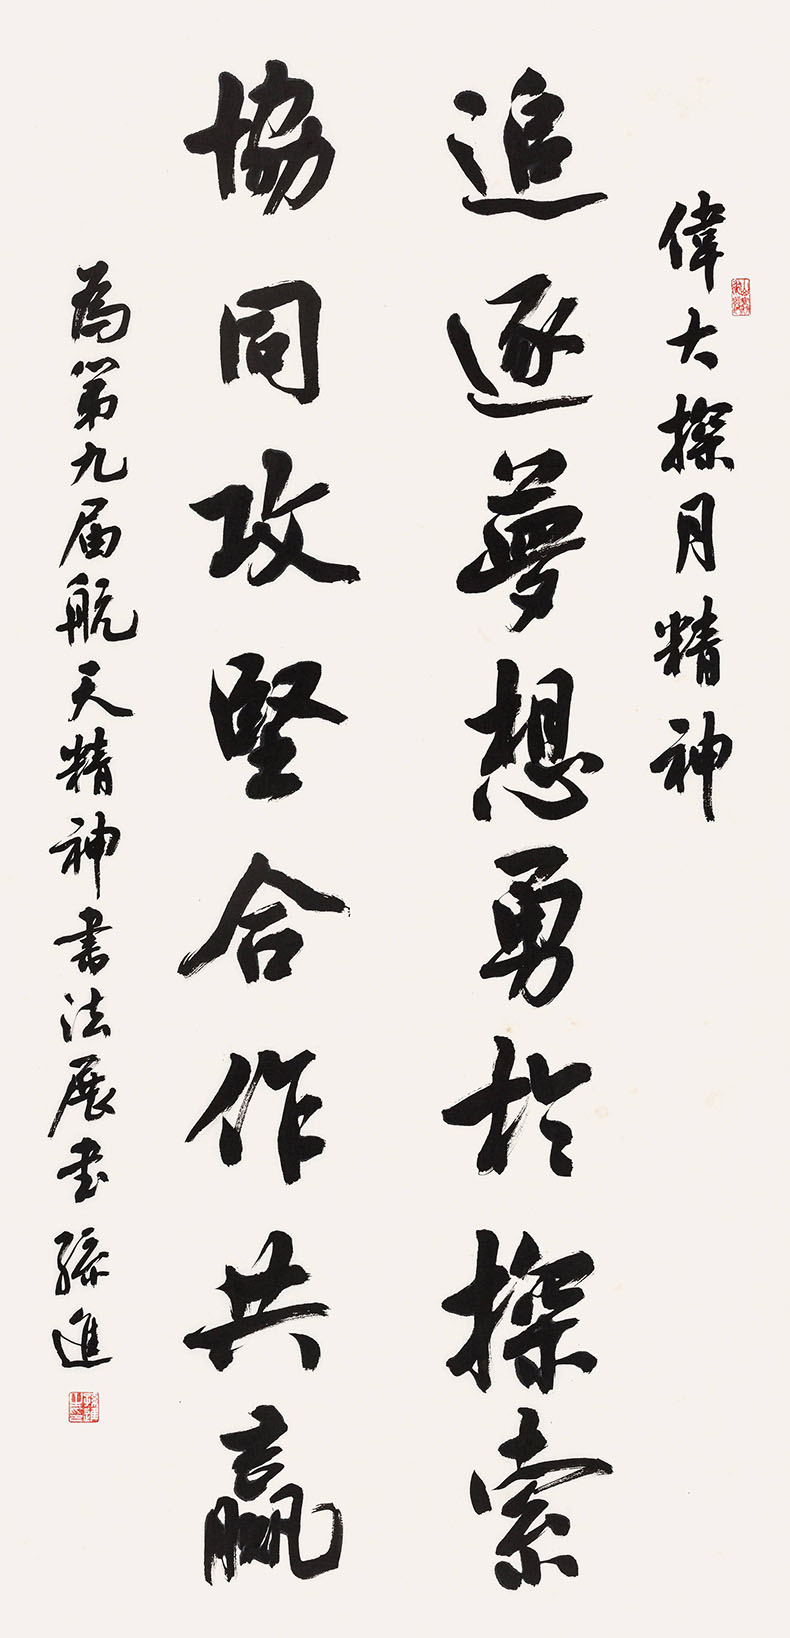 偉大探月精神
追逐夢想勇於探索
協同攻堅合作共贏
為第九届航天精神書法展書 孫進